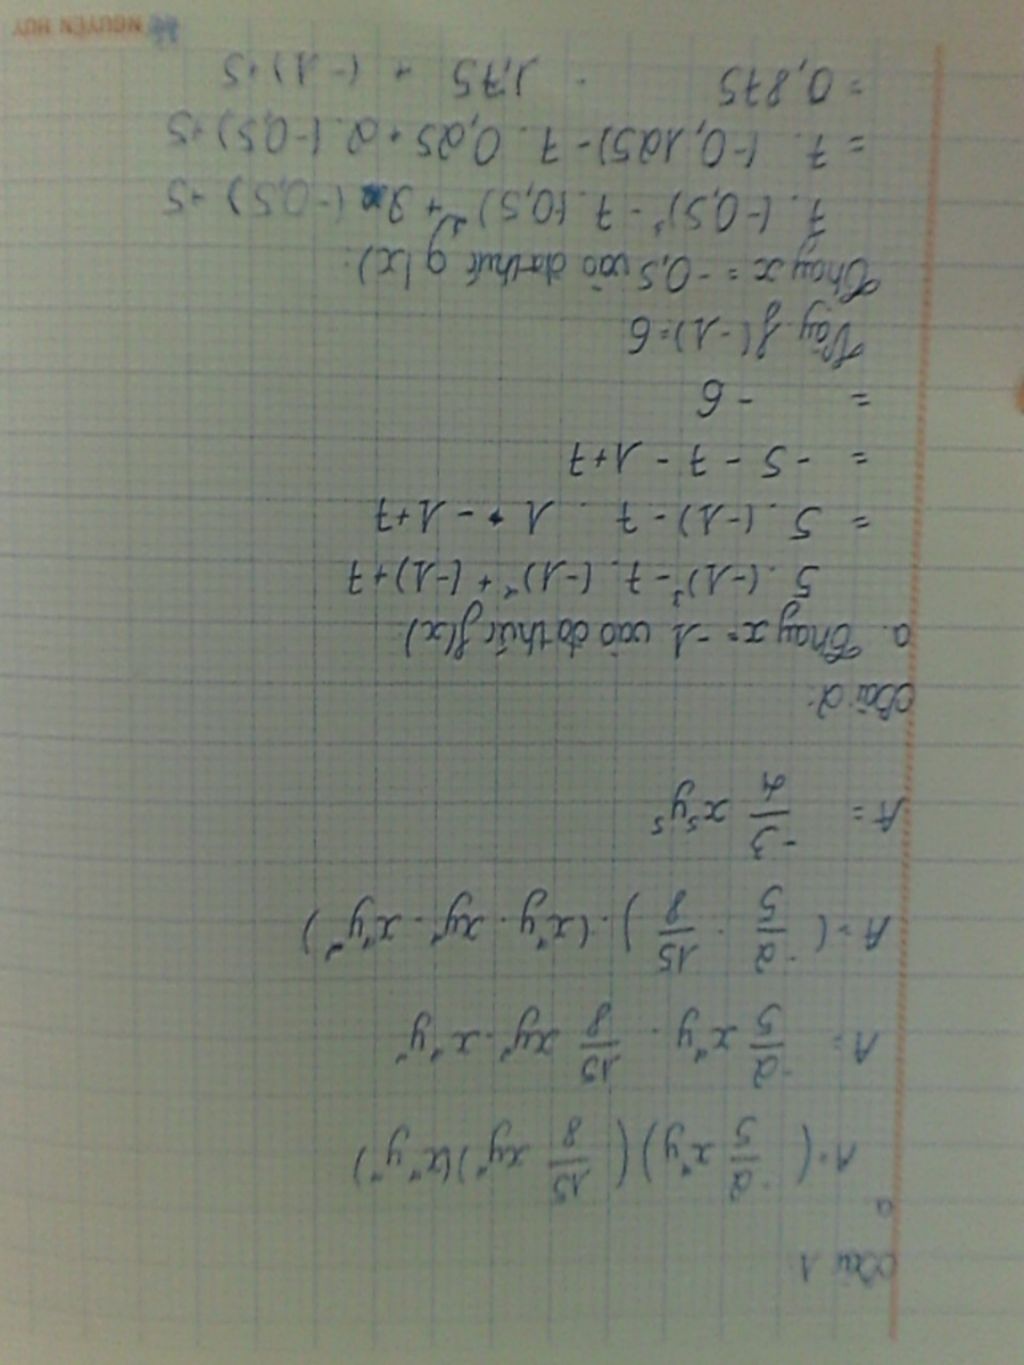 Bài 1
a
A = ( -2/5 x²y ) ( 15/8 xy² ) (x²y²)
A = -2/5 x²y . 15/8 xy² . x²y²
A = ( -2/5 . 15/8 ) . (x²y . xy² . x²y²)
A = -3/4 x⁵y⁵
Bài 2:
a. Thay x = -1 vào đa thức f(x)
5 . (-1)³ - 7 . (-1)² + (-1) + 7
= 5 . (-1) - 7 . 1 + - 1 + 7
= -5 - 7 - 1 + 7
= - 6
Vậy f(-1) = 6
Thay x = -0,5 vào đa thức g(x):
7 . (-0,5)³ - 7 . (-0,5)² + 2 . (-0,5) + 5
= 7 . (-0,125) - 7 . 0,25 + 2 . (-0,5) + 5
= 0,875 . 1,75 + (-1) + 5
NGUYEN HUY